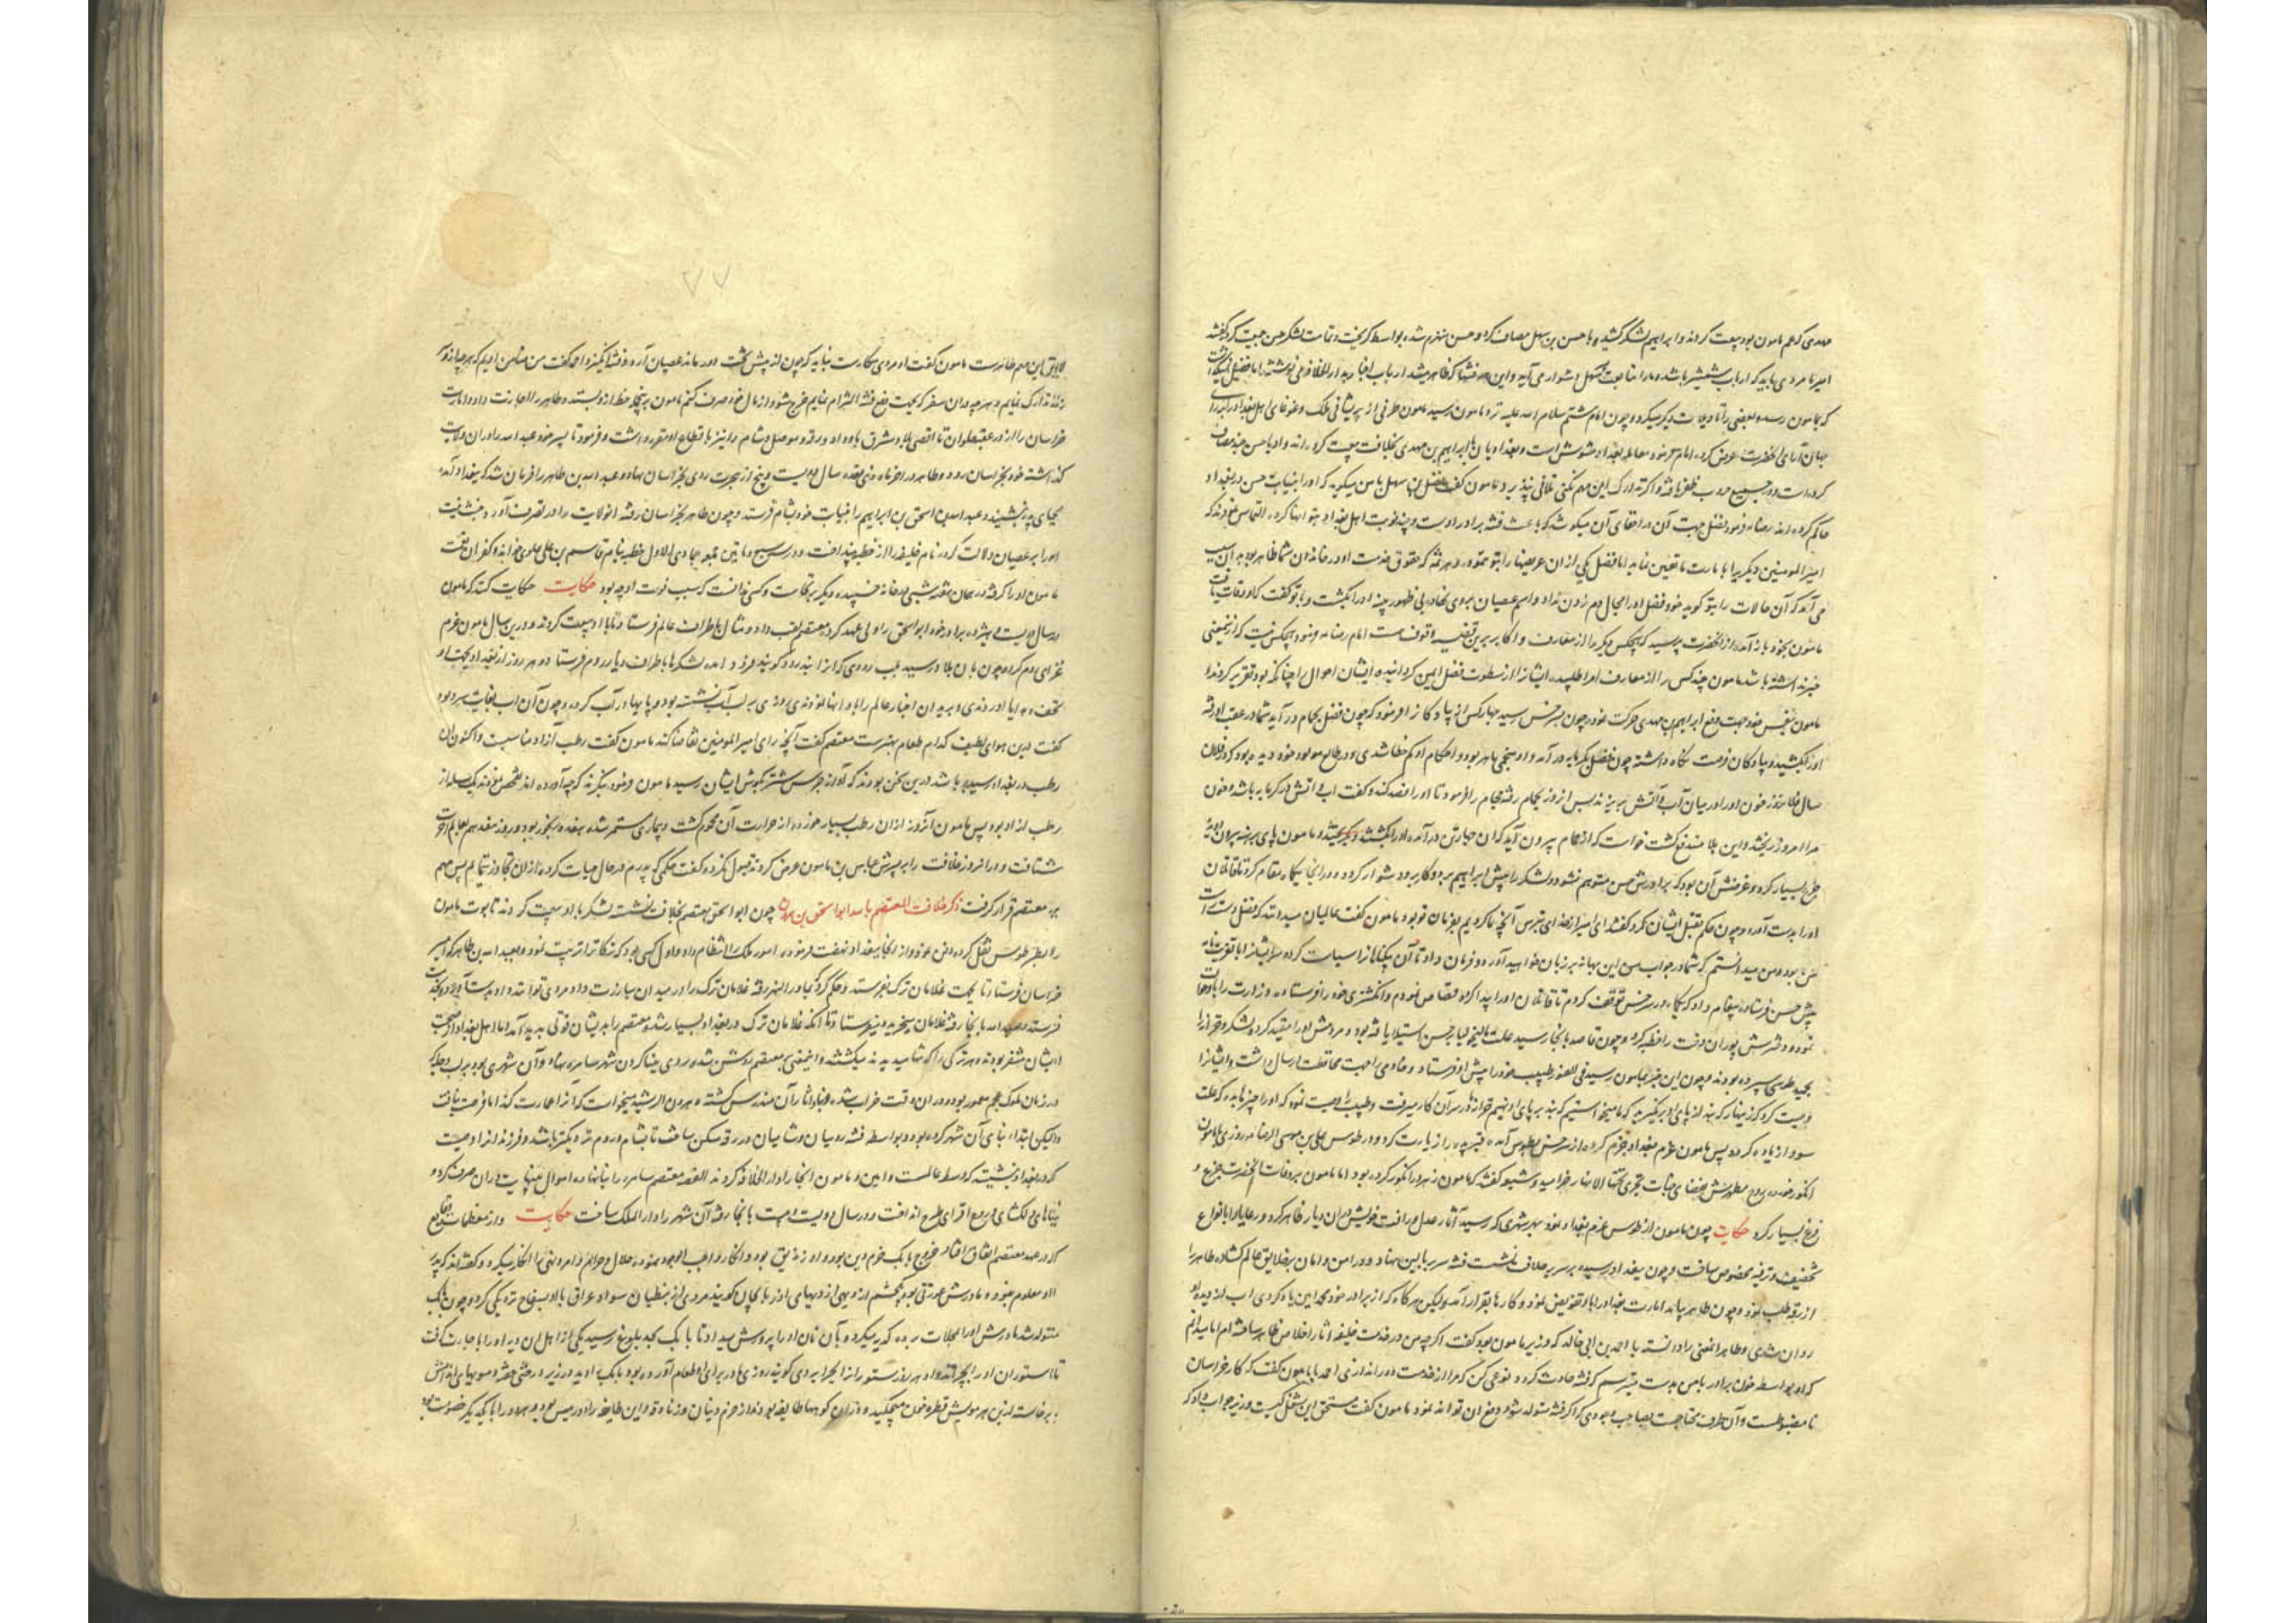 مهدی که عم مامون بود بیعت کردند و ابراهیم لشکر کشیده با حسن بن سهل مصاف کرد و حسن منهزم شده بواسط گریخت و تمامت لشکر حسن جمعیت کرد گفتند
امیر ما مردی باید که ارباب شمشیر باشد و ما را متابعت سهل دشوار می آید و این فتنها که ظاهر میشد ارباب اخبار بدار الخلافه می نوشتند اما فضل نمیگذاشت
که بمامون رسد و بعضی را تاویلات دیگر میکرد و چون امام هشتم سلام الله علیه نزد مامون رسید مامون طرفی از پریشانی ملک و غوغای اهل بغداد برای
جهان آرای آنحضرت عرض کرد امام فرمود معامله بغداد مشوش است و بغدادیان با ابراهیم بن مهدی بخلافت بیعت کرده اند و او با حسن چند مصاف
کرده است و در جمیع حروب ظفر یافته و اگر تدارک این مهم نکنی تلافی نپذیرد مامون گفت فضل بن سهل با من میگوید که او را بنیابت حسن در بغداد
حاکم کرده اند رضا فرمود فضل جهت آن در اخفای آن میکوشد که باعث فتنه برادر اوست و چند نوبت اهل بغداد بتو انها کرده التماس نمودند که
امیر المومنین دیگریرا بامارت ما تعیین نماید اما فضل یکی از ان عریضها را بتو ننموده و هرثمه که حقوق خدمت او در خاندان شما ظاهر بود بدین سبب
می آمد که آن حالات را بتو گوید خود فضل او را مجال دم زدن نداد و اسم عصیان بروی نهاد بی ظهور بینه او را بکشت و با تو گفت که او وفات یافت
مامون بخود باز آمده از آنحضرت پرسید که هیچکس دیگر را از معارف و اکابر برین قضیه وقوف هست امام رضا فرمود هیچکس نیست که از ینمعنی
خبر نداشته باشد مامون چند کس را از معارف امرا طلبیده ایشانرا از سطوت فضل ایمن گردانیده ایشان احوال را چنانکه بود تقریر کردند
مامون بنفس خود جهت دفع ابراهیم بن مهدی حرکت نمود و چون بسرخس رسید چهار کس از پیادگانرا فرمود که چون فضل بحمام در آید شما در عقب او رفته
او را بکشید و پیادگان فرصت نگاه داشته چون فضل بگرمابه در آمد و او منجمی ماهر بود و احکام او کم خطا شدی و در طالع مولود خود دیده بود که در فلان
سال فلان روز خون او را در میان آب و آتش بریزند پس آنروز بحمام رفته حجام را فرمود تا او را فصد کند و گفت اب و آتش در گرمابه باشد و خون
مرا امروز ریختند و این بلا مندفع گشت خواست که از حمام بیرون آید که ان چهار تن در آمده او را بکشتند و بگریختند و مامون پای برهنه بیرون دویده
جزع بسیار کرد و غرضش آن بود که برادرش حسن متوهم نشود و لشکر را پیش ابراهیم برد و کار برو دشوار گردد و در آنجا یکماه مقام کرد تا قاتلان
او را بدست آورد و چون حکم بقتل ایشان کرد گفتند ای امیر از خدای بترس آنچه ما کردیم بفرمان تو بود مامون گفت عالمیان میدانند که فضل دست راست
من بود و من میدانستم که شما در جواب من این بهانه بر زبان خواهید آورد و فرمان داد تا آن بیگناهان را سیاست کرده سر ایشانرا با تعزیت نامه
پیش حسن فرستاده پیغام داد که یکماه در سرخس توقف کردم تا قاتلان او را پیدا کرده قصاص نمودم و انگشتری خود را فرستاده وزارت را باو حوالت
نموده و دخترش پوران دخت را خطبه کرد و چون قاصد بانجا رسید علت مالیخولیا بر حسن استیلا یافته بود و مردمش او را مقید کرده لشکر و خزانه را
بحمید طوسی سپرده بودند و چون این خبر بمامون رسید فی الفور طبیب خود را پیش او فرستاد و خادمی را جهت محافظت ارسال داشت و ایشانرا
وصیت کرد که زینهار که بند از پای او برنگیرید که ما میخواستیم که بند بر پای او نهیم تواند در سر آن کار میرفت و طبیب را وصیت نمود که او را چیزها بده که علت
سودا زیاده گردد پس مامون عزم بغداد جزم کرده از سرخس بطوس آمده قبر پدر را زیارت کرد و در طوس علی بن موسی الرضا روزی با مامون
انگور خورده روح مطهرش بفضای جنات تجری تحتها الانهار خرامید و شیعه گفتند که مامون زهر در انگور کرده بود اما مامون بر وفات آنحضرت جزع و
فزع بسیار کرد حکایت چون مامون از طوس عزم بغداد نمود بهر شهری که رسید آثار عدل و رافت خویش در ان دیار ظاهر کرد و رعایا را بانواع
تخفیف و ترفیه مخصوص ساخت و چون ببغداد رسید بر سریر خلافت نشست فتنه سر ببالین نهاد و در امن و امان بر خلایق عالم گشاده طاهر را
از رقه طلب نمود و چون طاهر بیامد امارت بغداد را باو تفویض نمود و کارها بقرار آمد ولیکن هر گاه که از برادر خود محمد امین یاد کردی اب از دیده او
روان شدی و طاهر اینمعنی را دانسته با احمد بن ابی خالد که وزیر مامون بود گفت اگر چه من در خدمت خلیفه آثار اخلاص ظاهر ساخته ام اما میدانم
که او بواسطه خون برادر با من بدست میترسم که فتنه حادث گردد نوعی کن که مرا از خدمت دور اندازی احمد با مامون گفت که کار خراسان
نا مضبوطست و آن طرف محتاجست بصاحب وجودی که اگر فتنه متولد شود دفع ان تواند نمود مامون گفت مستحق این شغل کیست وزیر جواب داد که
لایق این مهم طاهرست مامون گفت او مردی مکارست نباید که چون از پیش تخت دور ماند عصیان آرد و فتنه انگیزد احمد گفت من ضامن اویم که هر چه ازو
زاید تدارک نمایم و هر چه در ان سفر که بجهت دفع فتنه التزام نمایم خرج شود از مال خود صرف کنم مامون برینجمله خط ازو بستد و طاهر را اجازت داد و امارت
خراسان را از در عقبه حلوان تا اقصی بلاد مشرق باو داد و رقه و موصل و شام را نیز باقطاع او مقرر داشت و فرمود تا پسر خود عبد الله را در ان ولایت
گذاشته خود بخراسان رود و طاهر در اخر ماه ذی قعده سال دویست و پنج از هجرت روی بخراسان نهاد و عبد الله بن طاهر را فرمان شد که ببغداد آمده
بجای پدر بنشیند و عبد الله بن اسحق بن ابراهیم را بنیابت خود بشام فرستد و چون طاهر بخراسان رفته انولایت را در تصرف آورد خبث نیت
او را بر عصیان دلالت کرد و نام خلیفه را از خطبه بینداخت و در سبع و ماتین جمعه جمادی الاول خطبه بنام قاسم بن علی علوی خواند و کفران نعمت
مامون او را گرفته در همان هفته شبی در خانه خسپیده دیگر برنخاست و کسی ندانست که سبب فوت او چه بود حکایت حکایت کنند که مامون
در سال دویست و هژده برادر خود ابو اسحق را ولی عهد کرد و معتصم لقب داد و مثال باطراف عالم فرستاد تا با او بیعت کردند و درین سال مامون عزم
غزای روم کرد و چون بان بلاد رسید بلب رودی که انرا بذندون گویند فرود آمده لشکرها باطراف دیار روم فرستاد و هر روز از بغداد بجهت او
تحف و هدایا اوردندی و بریدان اخبار عالم را باو انها نمودندی روزی بر لب آب نشسته بود و پایها در آب کرده و چون آن اب بغایت سرد بود
گفت درین هوای لطیف کدام طعام بهترست معتصم گفت آنچه رای امیر المومنین تقاضا کند مامون گفت رطب آزاد مناسبست و اکنون ان
رطب در بغداد رسیده باشد درین سخن بودند که آواز جرس شتر بگوش ایشان رسید مامون فرمود بنگرند که چه آورده اند تفحص نمودند یک سله از
رطب ازاد بود پس مامون آنروز از ان رطب بسیار خورده از حرارت آن محموم گشت و بیماری مستمر شده هفده روز رنجور بود و روز هفدهم بعالم آخرت
شتافت و در انروز خلافت را بر پسرش عباس بن مامون عرض کردند قبول نکرد و گفت حکمی که پدرم در حال حیات کرده از ان تجاوز ننمایم پس مهم
بر معتصم قرار گرفت ذکر خلافت المعتصم بالله ابو اسحق بن هرون چون ابو اسحق معتصم بخلافت نشست لشکر با او بیعت کردند تابوت مامون
را بطرسوس نقل کرده دفن نمود و از انجا ببغداد نهضت فرموده امور ملک را انتظام داد و اول کسی بود که ترکانرا تربیت نمود و بعبد الله بن طاهر که امیر
خراسان فرستاد تا بجهت غلامان ترک بفرستد و حکم کرد که بماورا النهر رفته غلامان ترک را در میدان مبارزت داد مردی توانند داد بدست آورده بخدمت
فرستد و عبد الله بانجا رفته غلامان میخرید و میفرستاد تا آنکه غلامان ترک در بغداد بسیار شد و معتصم را بدیشان قوتی پدید آمد اما اهل بغداد از صحبت
ایشان متنفر بودند و هر ترکی را که تنها میدیدند میکشتند و اینمعنی بر معتصم روشن شده روی ببنا کردن شهر سامره نهاد و آن شهری بود بر لب دجله که
در زمان ملوک عجم معمور بوده و در ان وقت خراب شده و بناء و آثار آن مندرس گشته و هرون الرشید میخواست که آنرا عمارت کند اما فرصت نیافت
ولیکن ابتداء بنای آن شهر کرده بود و بواسطه فتنه رومیان و شامیان در رقه مسکن ساخت تا بشام و روم نزدیکتر باشد و فرزندانرا وصیت
کرد ببغداد بنشینند که وسط عالمست و امین و مامون انجا را دار الخلافه کردند القصه معتصم سامره را بنا نهاده اموال بینهایت در ان صرف کرد و
بناهای دلگشای و ربوع افزای طرح انداخت و در سال دویست و بیست بانجا رفته آن شهر را دار الملک ساخت حکایت و از معظمات وقایع
که در عهد معتصم اتفاق افتاد خروج بابک خرم دین بود و او زندیقی بود و انکار واجب الوجود نموده حلال و حرام و امر و نهی را انکار میکرد و گفته اند که پدر
او معلوم نبوده مادرش عورتی بود یکچشم از دیهی از دیهای اذربایجان گویند مردی از نبطیان سواد عراق با او بسفاح نزدیکی کرد و چون بابک
متولد شد مادرش او را بمحلات برده گدیه میکرد و بآن نان او را پرورش میداد تا بابک بحد بلوغ رسید یکی از اهل ان دیه او را باجارت گرفت
تا ستوران او را بچراند و او هر روز ستورانرا بچرا بردی گویند روزی مادر برای او طعام آورده بود بابک را دید در زیر درختی خفته و مویهای اندامش
برخاسته از بن هر مویش قطره خون میچکید و در ان کوهها طایفه بودند از خرم دینان و زنادقه و این طایفه را دو رئیس بود و هر دو را با یکدیگر خصومت بود